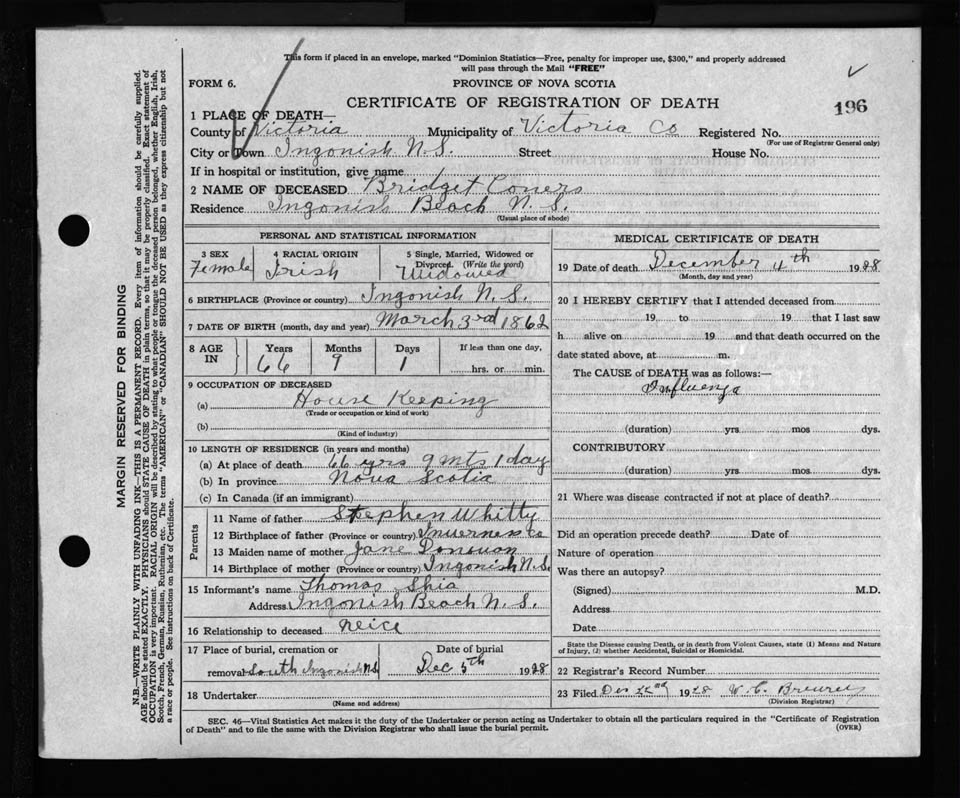 This form if placed in an envelope, marked "Dominion Statistics—Free, penalty for improper use, $300," and properly addressed
will pass through the Mail "FREE"
FORM 6. PROVINCE OF NOVA SCOTIA
CERTIFICATE OF REGISTRATION OF DEATH
196
1 PLACE OF DEATH—
County of Victoria Municipality of Victoria Co Registered No.
(For use of Registrar General only)
City or Town Ingonish N.S. Street House No.
If in hospital or institution, give name
2 NAME OF DECEASED Bridget Coners
Residence Ingonish Beach N.S.
(Usual place of abode)
PERSONAL AND STATISTICAL INFORMATION
3 SEX 4 RACIAL ORIGIN 5 Single, Married, Widowed or
Divorced. (Write the word)
Female Irish Widowed
6 BIRTHPLACE (Province or country) Ingonish N.S.
7 DATE OF BIRTH (month, day and year) March 3rd 1862
8 AGE IN Years Months Days If less than one day,
66 9 1 hrs. or min.
9 OCCUPATION OF DECEASED
(a) House Keeping
(Trade or occupation or kind of work)
(b)
(Kind of industry)
10 LENGTH OF RESIDENCE (in years and months)
(a) At place of death 66 yrs 9 mts 1 day
(b) In province Nova Scotia
(c) In Canada (if an immigrant)
Parents
11 Name of father Stephen Whitty
12 Birthplace of father (Province or country) Inverness Co
13 Maiden name of mother Jane Donovan
14 Birthplace of mother (Province or country) Ingonish N.S.
15 Informant's name Thomas Shia
Address Ingonish Beach N.S.
16 Relationship to deceased neice
17 Place of burial, cremation or Date of burial
removal South Ingonish N.S. Dec 5th 1928
18 Undertaker
(Name and address)
MEDICAL CERTIFICATE OF DEATH
19 Date of death December 4th 1928
(Month, day and year)
20 I HEREBY CERTIFY that I attended deceased from
19 to 19 that I last saw
h alive on 19 and that death occurred on the
date stated above, at m.
The CAUSE of DEATH was as follows:—
Influenza
(duration) yrs mos dys.
CONTRIBUTORY
(duration) yrs mos dys.
21 Where was disease contracted if not at place of death?
Did an operation precede death? Date of
Nature of operation
Was there an autopsy?
(Signed) M.D.
Address
Date
State the Disease causing Death, or in death from Violent Causes, state (1) Means and Nature
of Injury, (2) whether Accidental, Suicidal or Homicidal.
22 Registrar's Record Number
23 Filed 1928
(Division Registrar)
SEC. 46—Vital Statistics Act makes it the duty of the Undertaker or person acting as Undertaker to obtain all the particulars required in the "Certificate of Registration
of Death" and to file the same with the Division Registrar who shall issue the burial permit. (OVER)
MARGIN RESERVED FOR BINDING
N.B.—WRITE PLAINLY WITH UNFADING INK—THIS IS A PERMANENT RECORD. Every item of information should be carefully supplied.
AGE should be stated EXACTLY. PHYSICIANS should STATE CAUSE OF DEATH in plain terms, so that it may be properly classified. Exact statement of
OCCUPATION is very important. RACIAL ORIGIN will be described by stating to what people or tongue the deceased person belonged, whether English, Irish,
Scotch, French, German, Russian, Ruthenian, etc. The terms "AMERICAN" or "CANADIAN" SHOULD NOT BE USED as they express citizenship but not
a race or people. See instructions on back of Certificate.